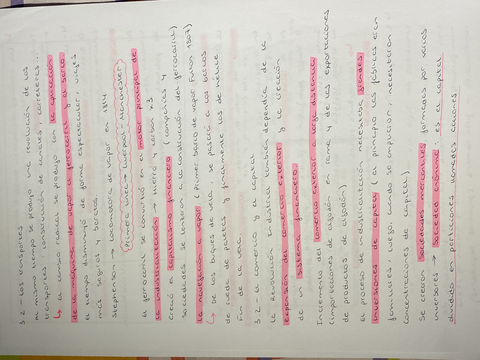 3.2 - Los transportes
Al mismo tiempo se produjo una revolución de los
transportes: construcción de canales, carreteras...
↳ el cambio radical se produjo con la aplicación
de la máquina de vapor al ferrocarril y al barco
el tiempo disminuyó de forma espectacular, viajes
más seguros y baratos
Stephenson → locomotora de vapor en 1814
Primera línea → Liverpool - Manchester
el ferrocarril se convirtió en un motor principal de
la industrialización → hierro y carbón
creció el capitalismo financiero (compañías y
sociedades se lanzaron a la construcción del ferrocarril)
La navegación a vapor (Primer barco de vapor Fulton 1807)
↳ De los buques de vela, se pasaría a los barcos
de rueda de paletas y finalmente los de hélice
Fin de la vela
3.2 - el comercio y el capital
La Revolución Industrial también dependía de la
expansión del comercio exterior y la creación
de un sistema financiero
Incremento del comercio exterior a larga distancia
(importaciones de algodón en rama y de las exportaciones
de productos de algodón)
el proceso de industrialización necesitaba grandes
inversiones de capitales (al principio las fábricas eran
familiares, luego cuando se ampliaron, necesitaron
concentraciones de capital)
Se crearon Sociedades mercantiles formadas por varios
inversores → Sociedad anónima es el capital
dividido en particiones llamadas acciones